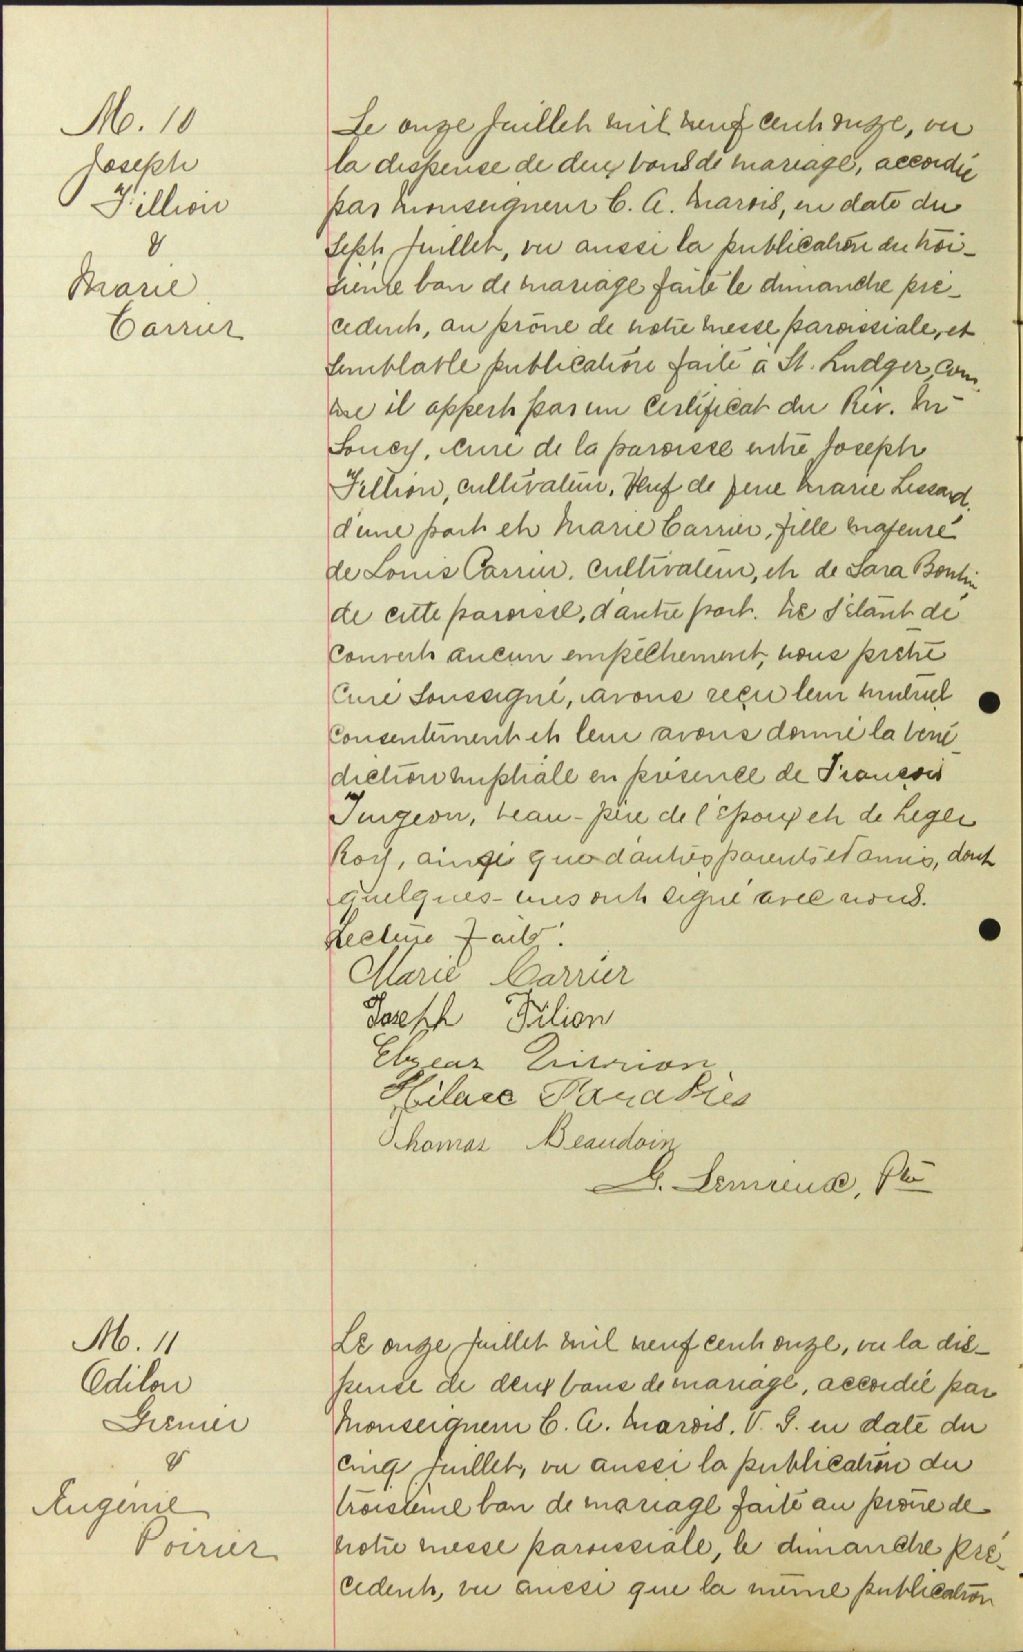 M. 10
Joseph
Fillion
&
Marie
Carrier
Le onze Juillet mil neuf cent onze, vu
la dispense de deux bans de mariage, accordée
par Monseigneur C. A. Marois, en date du
sept Juillet, vu aussi la publication du troi-
sième ban de mariage faite le dimanche pré-
cedent, au prône de notre messe paroissiale, et
semblable publication faite à St. Ludger, com-
me il appert par un certificat du Rév. Mr
Soucy, curé de la paroisse entre Joseph
Fillion, cultivateur, Veuf de feue Marie Lessard,
d'une part et Marie Carrier, fille majeure
de Louis Carrier, cultivateur, et de Sara Boutin
de cette paroisse, d'autre part. Ne s'étant dé
couvert aucun empêchement, nous prêtre
curé soussigné, avons reçu leur mutuel
consentement et leur avons donné la béné-
diction nuptiale en présence de François
Turgeon, beau-père de l'époux et de Leger
Roy, ainsi que d'autres parents et amis, dont
quelques-uns ont signé avec nous.
Lecture faite.
Marie Carrier
Joseph Filion
Elzear
Hilaee
Thomas Beaudoin
G. Lemieux, Ptre
M. 11
Odilon
Grenier
&
Eugénie
Poirier
Le onze Juillet mil neuf cent onze, vu la dis-
pense de deux bans de mariage, accordée par
Monseigneur C. A. Marois, V. G. en date du
cinq Juillet, vu aussi la publication du
troisième ban de mariage faite au prône de
notre messe paroissiale, le dimanche pré-
cedent, vu aussi que la même publication